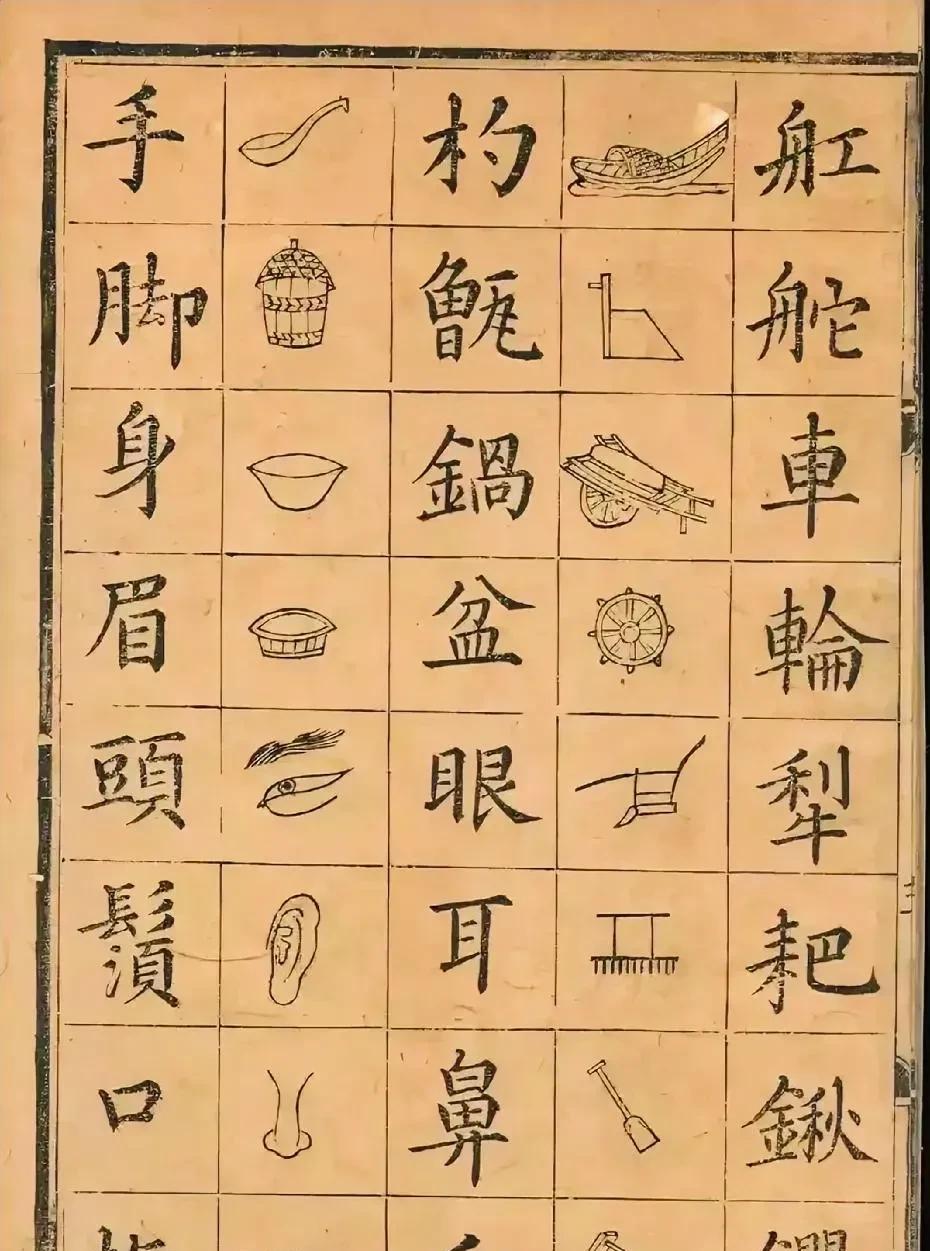 舡舵車輪犁耙鍬
杓甑鍋盆眼耳鼻
手脚身眉頭鬚口